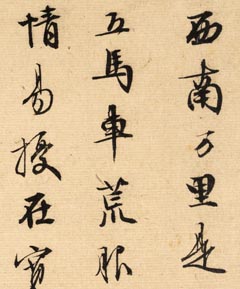 西南万里是
五馬車荒服
情易擾在實